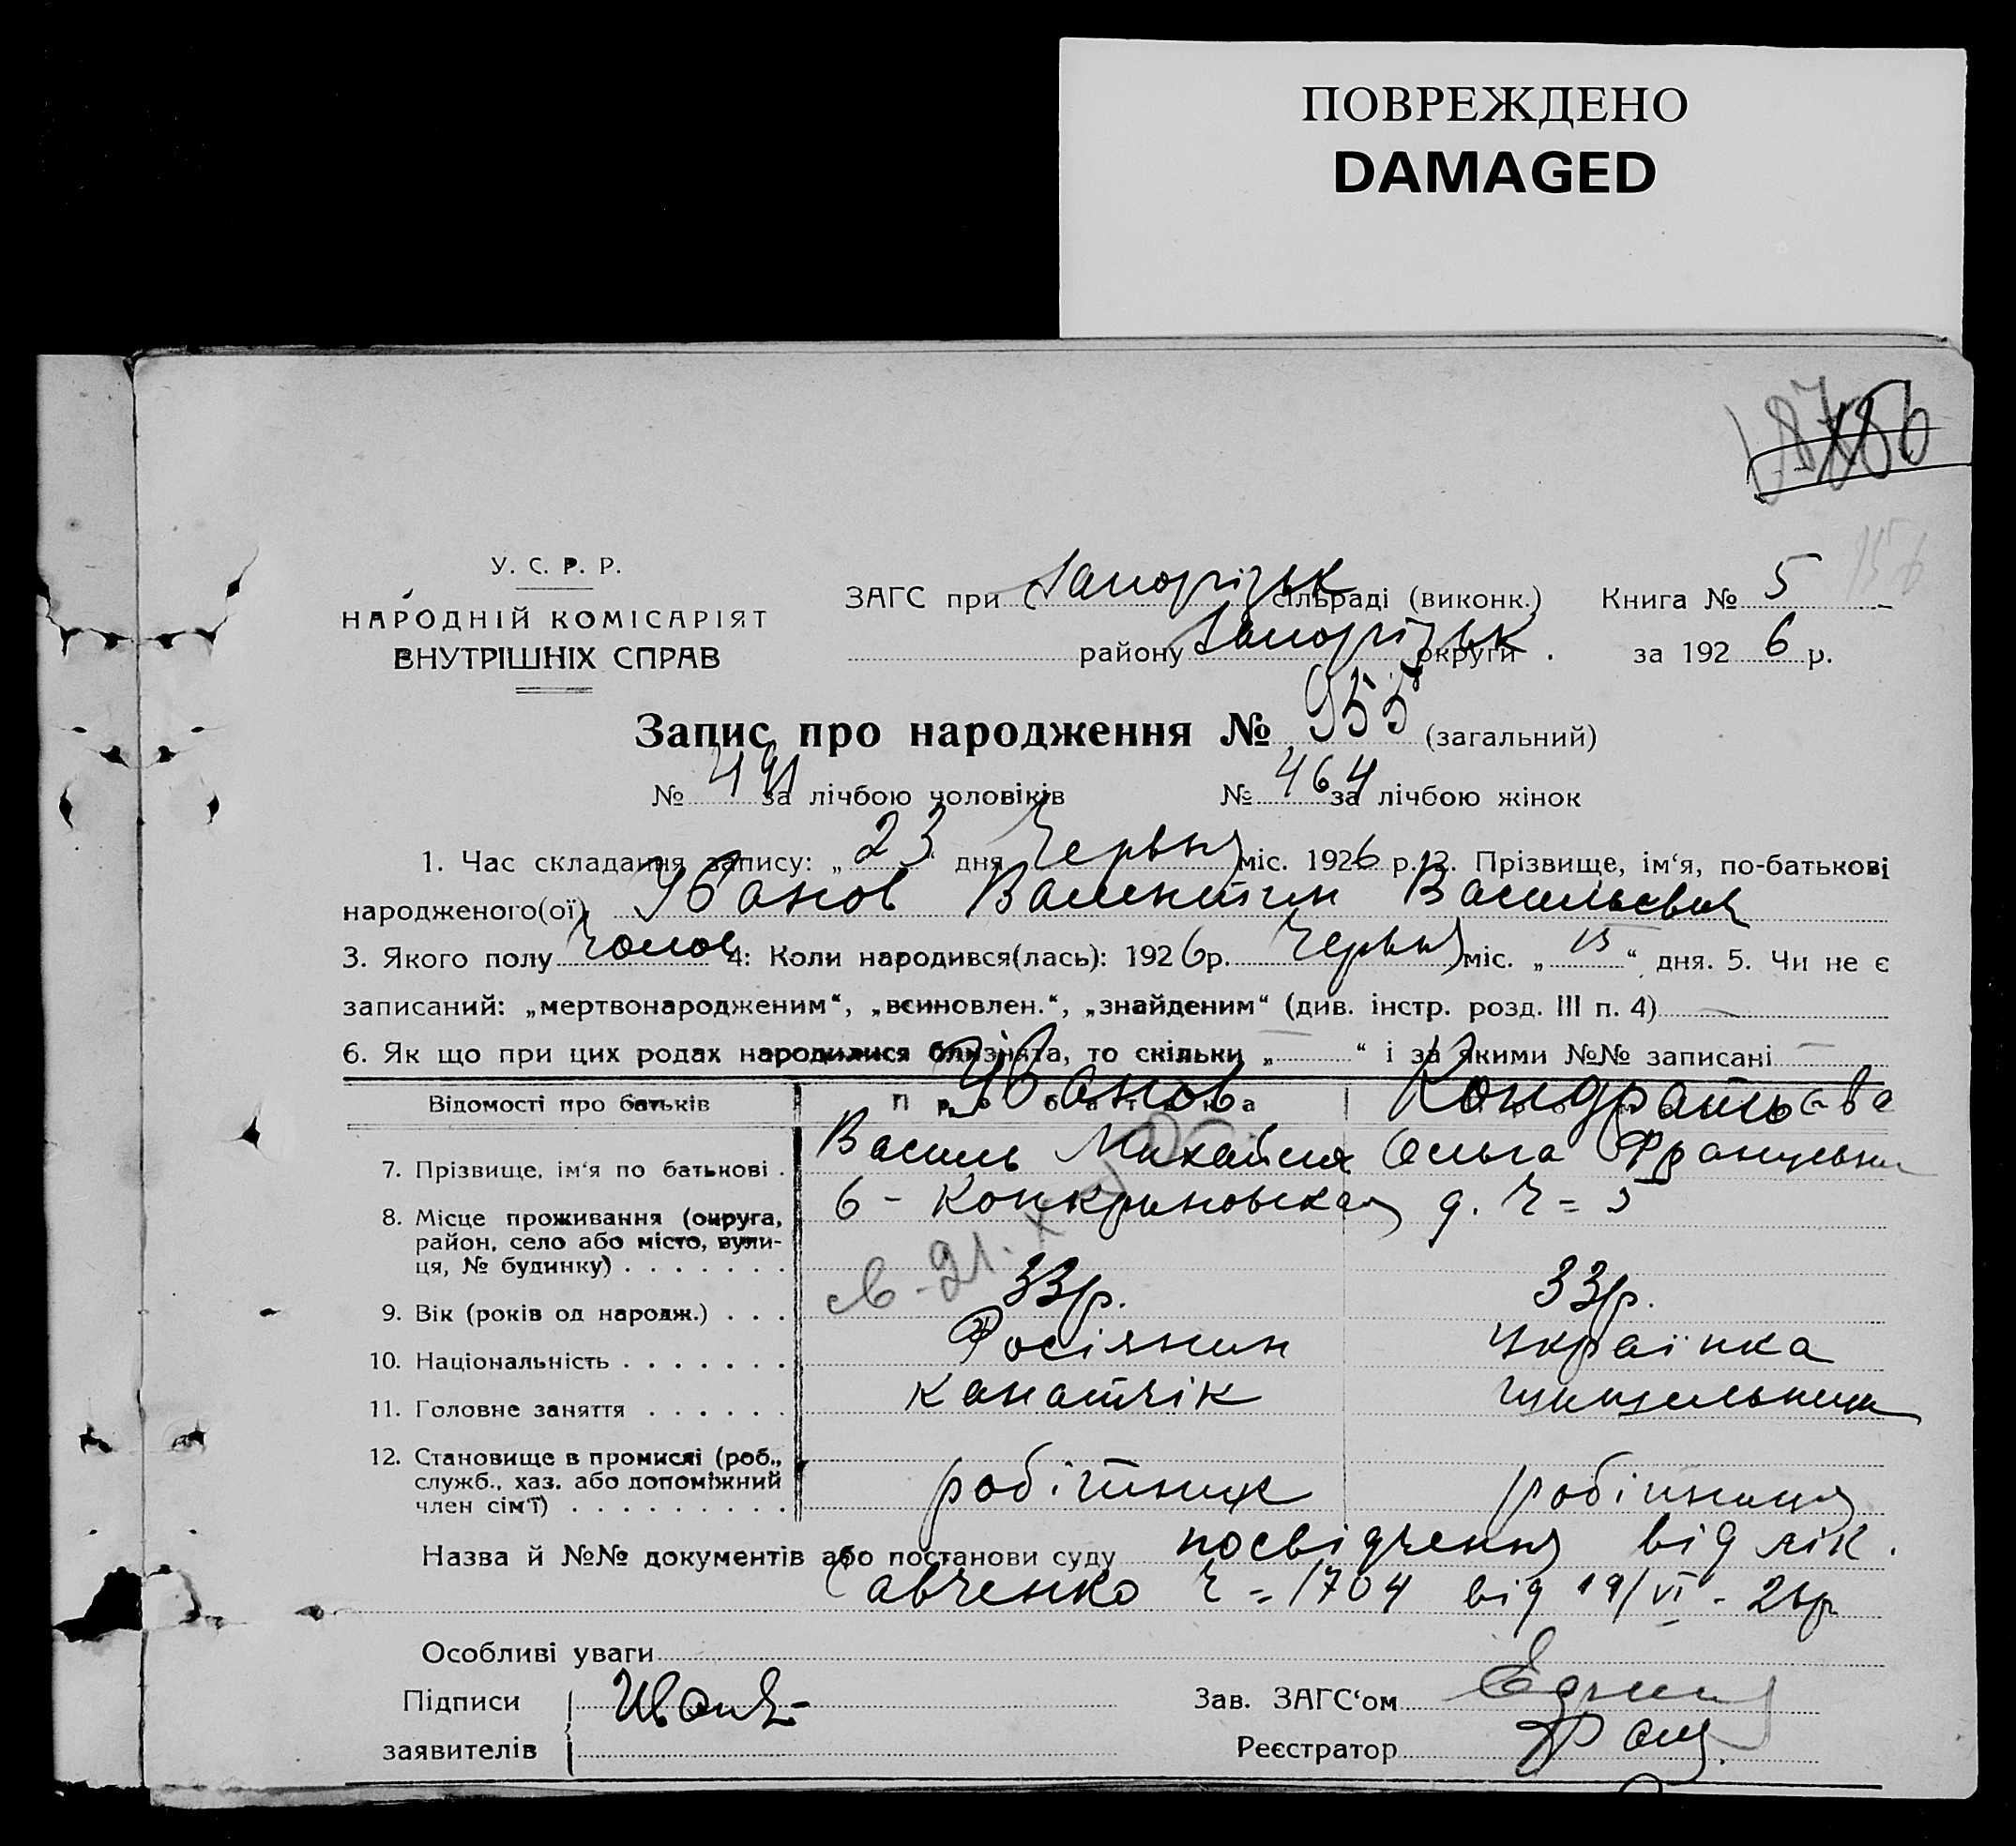 ПОВРЕЖДЕНО
DAMAGED
156
У. С. Р. Р.
НАРОДНІЙ КОМІСАРІЯТ
ВНУТРІШНІХ СПРАВ
ЗАГС при Запорізьк сільраді (виконк.) Книга № 5
району Запорізьк округи . за 1926 р.
Запис про народження № 955 (загальний)
№ 491 за лічбою чоловіків № 464 за лічбою жінок
1. Час складання запису: „ 23 “ дня Червня міс. 1926 р. 2. Прізвище, ім‘я, по-батькові
народженого(ої) Іванов Валентин Васильевич
3. Якого полу Чолов 4: Коли народився(лась): 1926 р. Червня міс. „ 15 “ дня. 5. Чи не є
записаний: „мертвонародженим“, „всиновлен.“, „знайденим“ (див. інстр. розд. III п. 4) —
6. Як що при цих родах народилися близнята, то скільки „ — “ і за якими №№ записані —
Відомості про батьків Про батька
Іванов Кондратьева
7. Прізвище, ім‘я по батькові . Василь Михайлов Ольга Францевна
8. Місце проживання (округа, район, село або місто, вулиця, № будинку) . . . . . . . 6 - Конкриновская д. Ч = 5
9. Вік (років од народж.) . . . 33 р. 33 р.
10. Національність . . . . . . . Росіянин Українка
11. Головне заняття . . . . . . канатчік
12. Становище в промислі (роб., служб., хаз. або допоміжний член сім‘ї) . . . . . . . . . робітник робітниця
Назва й №№ документів або постанови суду посвідчення від лік.
Савченко Ч = 1704 від 19/VI - 26р
Особливі уваги
Підписи Иванов Зав. ЗАГС‘ом
заявителів Реєстратор